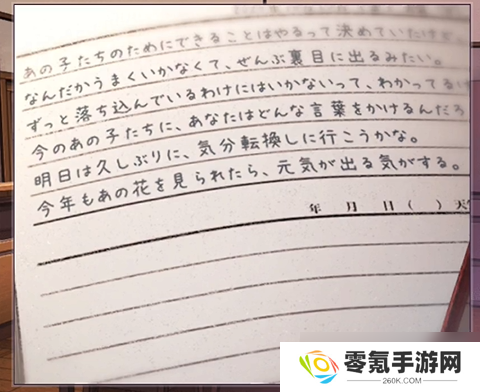 あの子たちのためにできることはやるって決めていたけど
なんだかうまくいかなくて、ぜんぶ裏目に出るみたい。
ずっと落ち込んでいるわけにはいかないって、わかってるい
今のあの子たちに、あなたはどんな言葉をかけるんだろ
明日は久しぶりに、気分転換しに行こうかな。
今年もあの花を見られたら、元気が出る気がする。
年 月 日( ) 天
零氪手游网
260K.COM